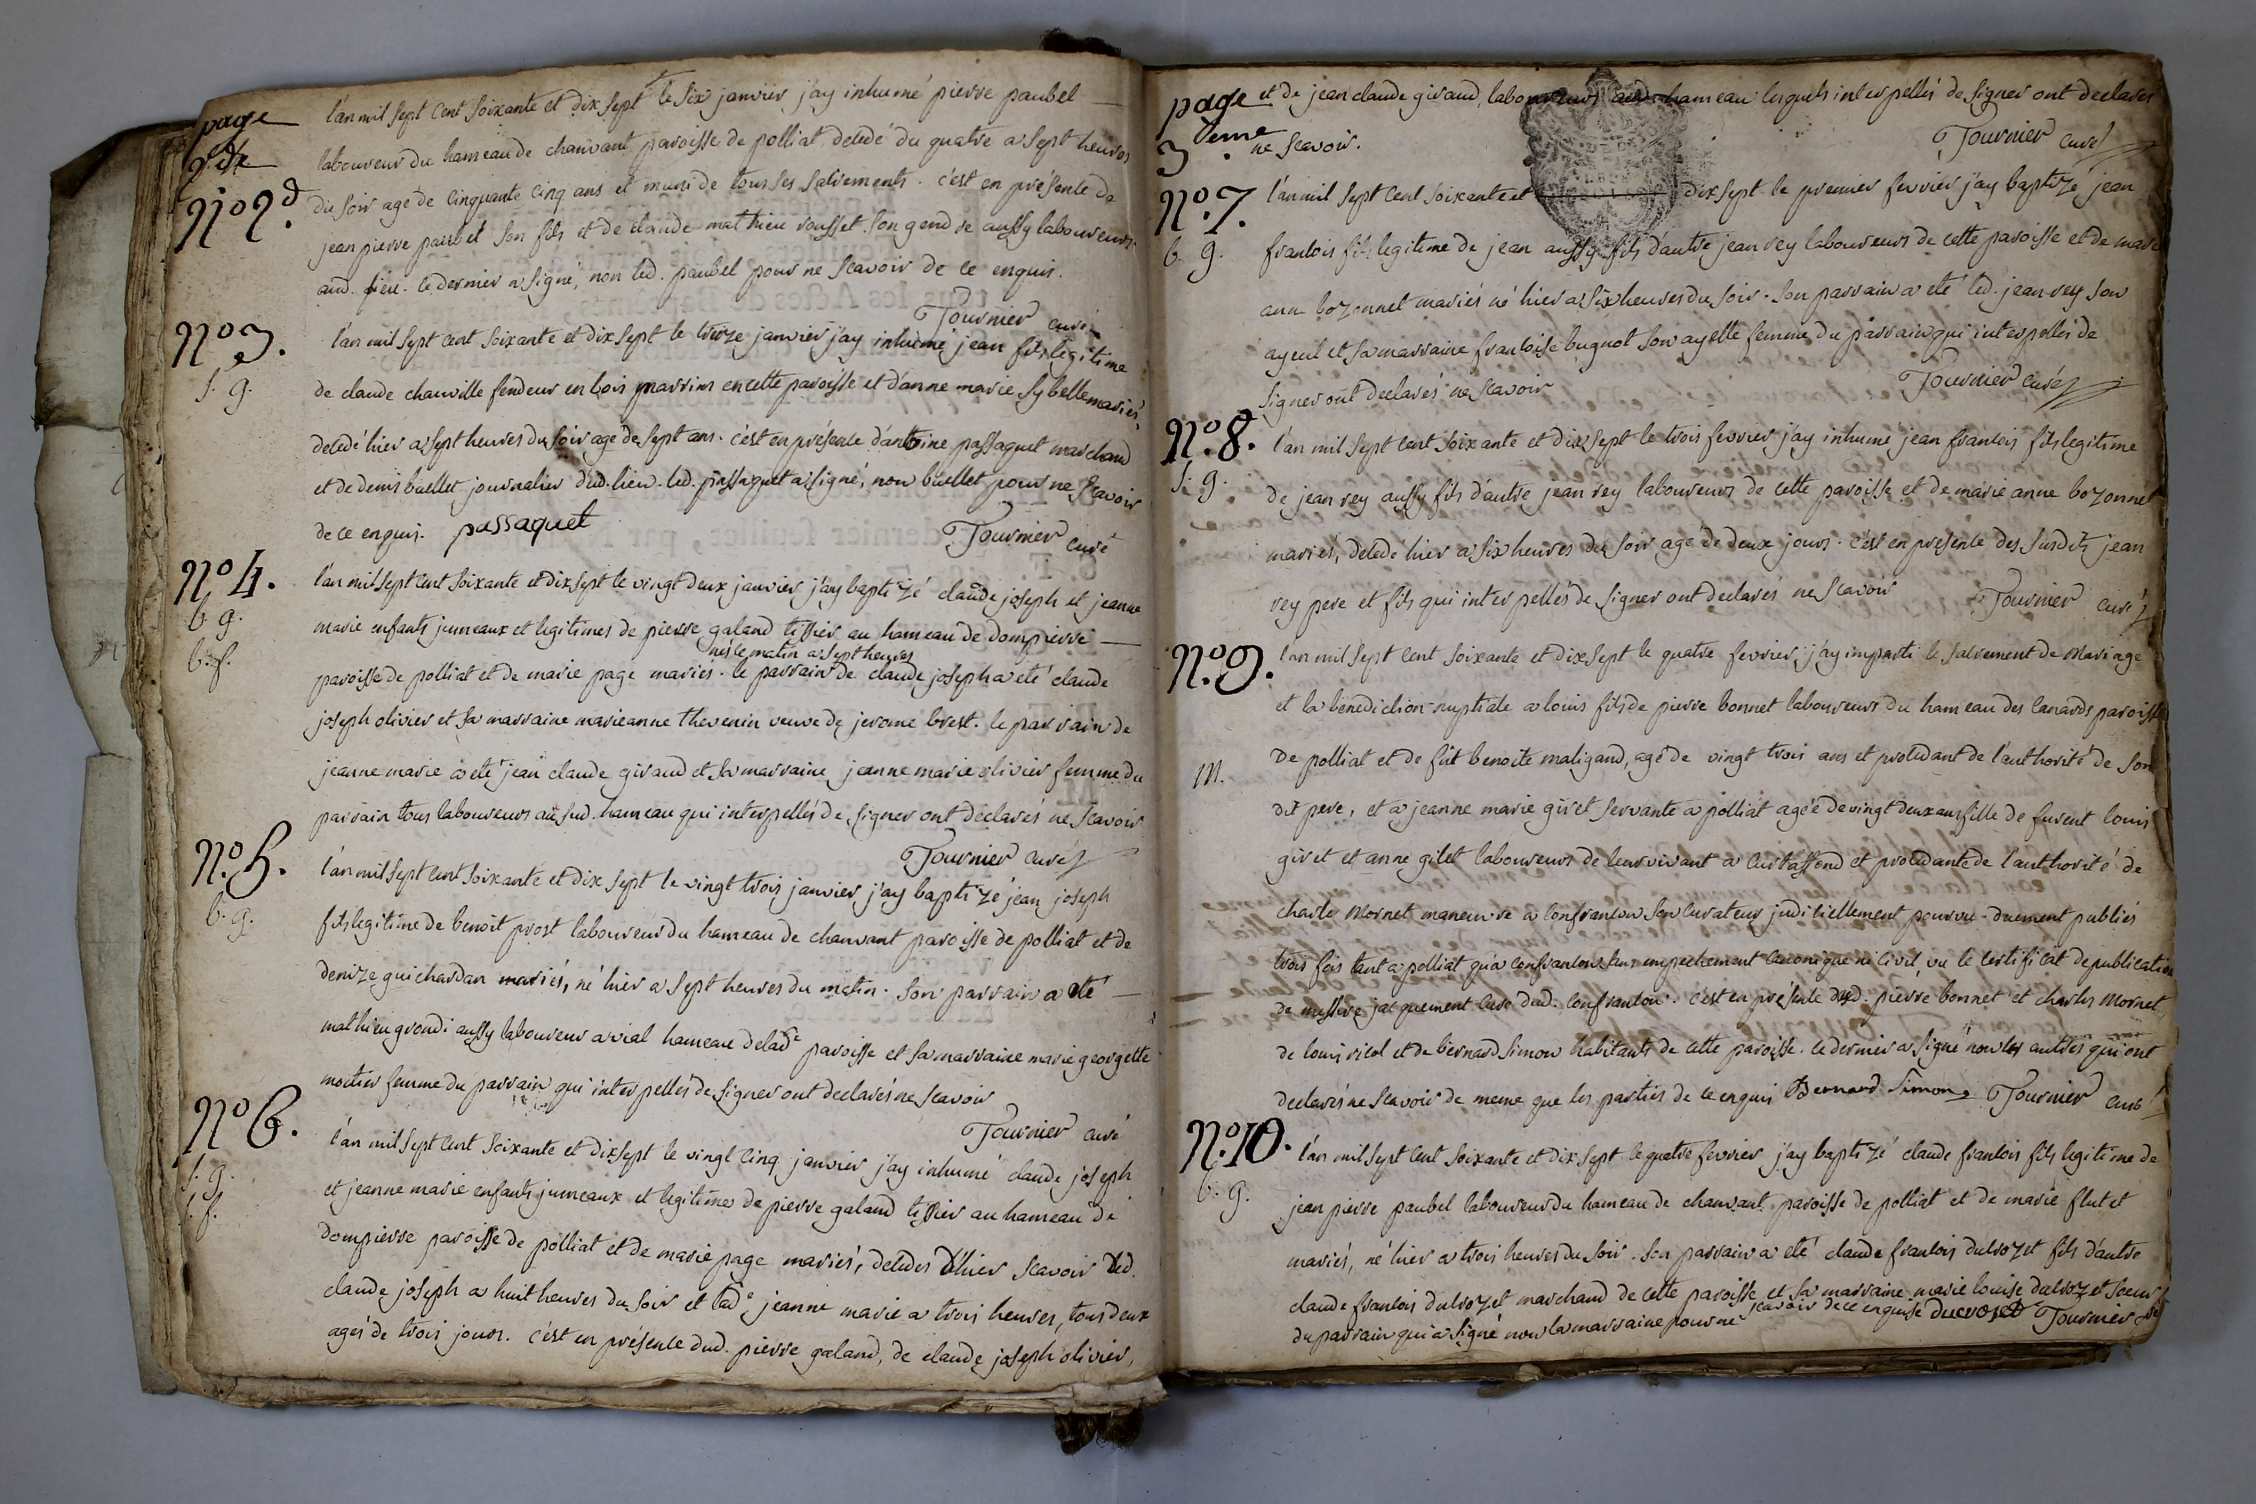 page
2de
l'an mil sept cent soixante et dix sept le six janvier j'ay inhumé pierre paubel
N° 2d.
laboureur du hameau de chanvant paroisse de polliat decedé du quatre a sept heures
du soir agé de cinquante cinq ans et muni de tous ses sacrements. c'est en presence de
jean pierre paubel son fils et de claude mathieu rousset son gendre aussy laboureurs
aud. lieu. le dernier a signé, non led. paubel pour ne scavoir de ce enquis.
Tournier curé
N° 3.
s. g.
l'an mil sept cent soixante et dix sept le treze janvier j'ay inhumé jean fils legitime
de claude chauville fendeur en bois marrim en cette paroisse et d'anne marie sybelle mariés,
decedé hier a sept heures du soir agé de sept ans. c'est en présence d'antoine passaquet marchand
et de denis buellet journalier dud. lieu. led. passaquet a signé, non buellet pour ne scavoir
de ce enquis. passaquet Tournier curé
N° 4.
b. g.
b. f.
l'an mil sept cent soixante et dix sept le vingt deux janvier j'ay baptizé claude joseph et jeanne
marie enfants jumeaux et legitimes de pierre galand tissier au hameau de dompierre
nés le matin a sept heures
paroisse de polliat et de marie page mariés. le parrain de claude joseph a eté claude
joseph olivier et sa marraine marieanne thevenin veuve de jerome brest. le parrain de
jeanne marie a eté jean claude giraud et sa marraine jeanne marie olivier femme du
parrain tous laboureurs au sud. hameau qui interpellés de signer ont declarés ne scavoir
Tournier curé
N° 5.
b. g.
l'an mil sept cent soixante et dix sept le vingt trois janvier j'ay baptizé jean joseph
fils legitime de benoit prost laboureur du hameau de chanvant paroisse de polliat et de
denize guichardan mariés, né hier a sept heures du matin. son parrain a eté
mathieu grondi aussy laboureur a vial hameau de lade paroisse et sa marraine marie georgette
moitier femme du parrain qui interpellés de signer ont declarés ne scavoir
Tournier curé
N° 6.
s. g.
s. f.
l'an mil sept cent soixante et dix sept le vingt cinq janvier j'ay inhumé claude joseph
et jeanne marie enfants jumeaux et legitimes de pierre galand tissier au hameau de
dompierre paroisse de polliat et de marie page mariés, decedés d'hier scavoir led.
claude joseph a huit heures du soir et lade jeanne marie a trois heures, tous deux
agés de trois jours. c'est en présence dud. pierre galand, de claude joseph olivier,
page
3eme
et de jean claude giraud laboureurs aud. hameau lesquels interpellés de signer ont declarés
ne scavoir.
Tournier curé
N° 7.
b. g.
l'an mil sept cent soixante et dix sept le premier fevrier j'ay baptizé jean
francois fils legitime de jean aussy fils d'autre jean rey laboureurs de cette paroisse et de marie
anne bozonnet mariés né hier a six heures du soir. son parrain a eté led. jean rey son
ayeul et sa marraine francoise bugnot son ayelle femme du parrain qui interpellés de
signer ont declarés ne scavoir Tournier curé
N° 8.
s. g.
l'an mil sept cent soixante et dix sept le trois fevrier j'ay inhumé jean francois fils legitime
de jean rey aussy fils d'autre jean rey laboureurs de cette paroisse et de marie anne bozonnet
mariés, decedé hier a six heures du soir agé de deux jours. c'est en présence des susdits jean
rey pere et fils qui interpellés de signer ont declarés ne scavoir Tournier curé
N° 9.
m.
l'an mil sept cent soixante et dix sept le quatre fevrier j'ay imparti le sacrement de mariage
et la benediction nuptiale a louis fils de pierre bonnet laboureurs du hameau des canards paroisse
de polliat et de fût benoite maligand, agé de vingt trois ans et procedant de l'authorité de son
dit pere, et a jeanne marie givet servante a polliat agée de vingt deux ans fille de furent louis
givet et anne gilet laboureurs de leur vivant a curtaffond et procedante de l'authorité de
charle mornet maneuvre a confrancon son curateur judiciellement pourvu. duement publiés
trois fois tant a polliat, qu'a confrancon sans empechement canonique ni civil, vu le certificat de publication
de messire jacquement curé dud. confrancon. c'est en présence dusd. pierre bonnet et charles mornet,
de louis ricol et de bernard simon habitants de cette paroisse. le dernier a signé non les autres qui ont
declarés ne scavoir de meme que les parties de ce enquis Bernard Simon Tournier curé
N° 10.
b. g.
l'an mil sept cent soixante et dix sept le quatre fevrier j'ay baptizé claude francois fils legitime de
jean pierre paubel laboureur du hameau de chanvant paroisse de polliat et de marie flutet
mariés, né hier a trois heures du soir. son parrain a eté claude francois ducrozet fils d'autre
claude francois ducrozet marchand de cette paroisse et sa marraine marie louise ducrozet soeur
du parrain qui a signé non la marraine pour ne scavoir de ce enquise ducrozet Tournier curé